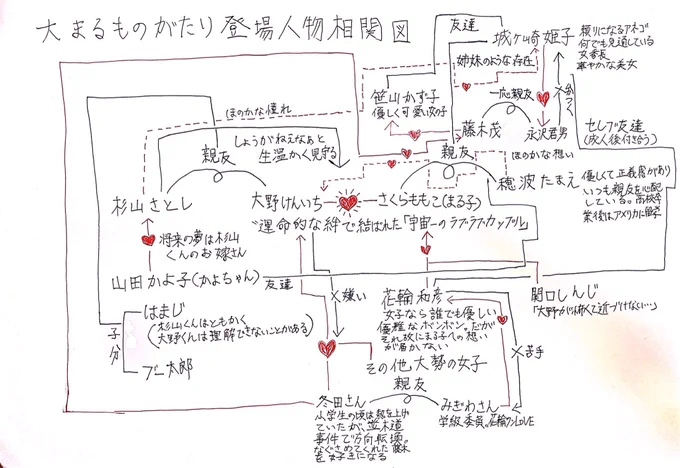 大まるものがたり登場人物相関図
友達
城ヶ崎姫子
頼りになるアネゴ
何でも見通している
女番長
華やかな美女
姉妹のような存在
笹山かず子
優しく可愛い女の子
一応親友
藤木茂
永沢君男
セレブ友達
(成人後付き合う)
ほのかな憧れ
しょうがねえなぁと
生温かく見守る
親友
親友
ほのかな想い
杉山さとし
大野けんいち
さくらももこ(まる子)
穂波たまえ
優しくて正義感があり
いつも親友を心配
している。高校卒
業後はアメリカに留学
"運命的な絆で結ばれた「宇宙一のラブ・ラブ・カップル」"
将来の夢は杉山
くんのお嫁さん
山田かよ子(かよちゃん)
友達
嫌い
花輪和彦
女子なら誰でも優しい
優雅なボンボン。だが
それ故にまる子への想い
が届かない
関口しんじ
「大野が怖くて近づけない…」
子分
はまじ
(杉山くんはともかく
大野くんは理解できないことがある)
ブー太郎
苦手
その他大勢の女子
親友
冬田さん
小学生の頃は熱を上げ
ていたが、並木道
事件で方向転換。
なぐさめてくれた藤木
を好きになる
みぎわさん
学級委員。花輪クンLOVE